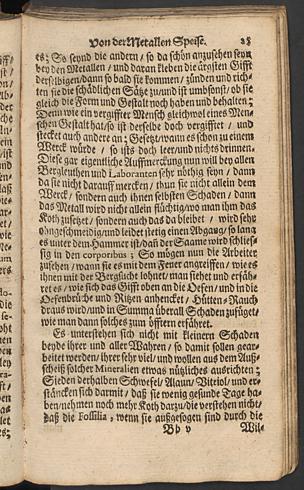 Von der Metallen Speise. 25
es; So seynd die andern / so da schön anzusehen seyn
bey den Metallen / und daran kleben die ärgsten Giffte
derselbigen / dann so bald sie kommen / zünden und rich-
ten sie die schädlichen Sätze zu / und ist umbsonst / ob sie
gleich die Form und Gestalt noch haben und behalten;
Denn wie ein vergiffter Mensch gleichwol eines Men-
schen Gestalt hat / so ist derselbe doch vergifftet / und
stecket auch andere an; Gesetzt / wann es schon zu einem
Werck würde / so ists doch leer / und nichts drinnen.
Diese gar eigentliche Auffmerckung nun will bey allen
Bergleuthen und Laboranten sehr nöthig seyn / dann
da sie nicht darauff mercken / thun sie nicht allein dem
Werck / sondern auch ihnen selbsten Schaden / dann
das Metall wird nicht allein flüchtig / wo man ihm das
Koth zusetzet / sondern auch das da bleibet / wird sehr
ungeschmeidig / und leidet stetig einen Abgang / so lang
es unter dem Hammer ist / daß der Saame wird schließ-
sig in den corporibus; So mögen nun die Arbeiter
zusehen / wann sie es mit dem Feuer angreiffen / wie es
ihnen mit der Bergsucht lohnet / man siehet und erfäh-
ret es / wie sich das Gifft oben an die Oefen / und in die
Oefenbrüche und Ritzen anhencket / Hütten-Rauch
draus wird / und in Summa überall Schaden zufüget /
wie man dann solches zum öfftern erfähret.
Es unterstehen sich nicht mit kleinem Schaden
beyde ihrer und aller Wahren / so damit sollen gear-
beitet werden / ihrer sehr viel / und wollen aus dem Auß-
scheiß solcher Mineralien etwas nützliches ausrichten;
Sieden derhalben Schwefel / Alaun / Vitriol / und er-
stäncken sich darmit / daß sie wenig gesunde Tage ha-
ben / nehmen noch mehr Koth darzu / die verstehen nicht /
daß die Fossilia, wenn sie außgesogen sind durch die
Bb v Wil-